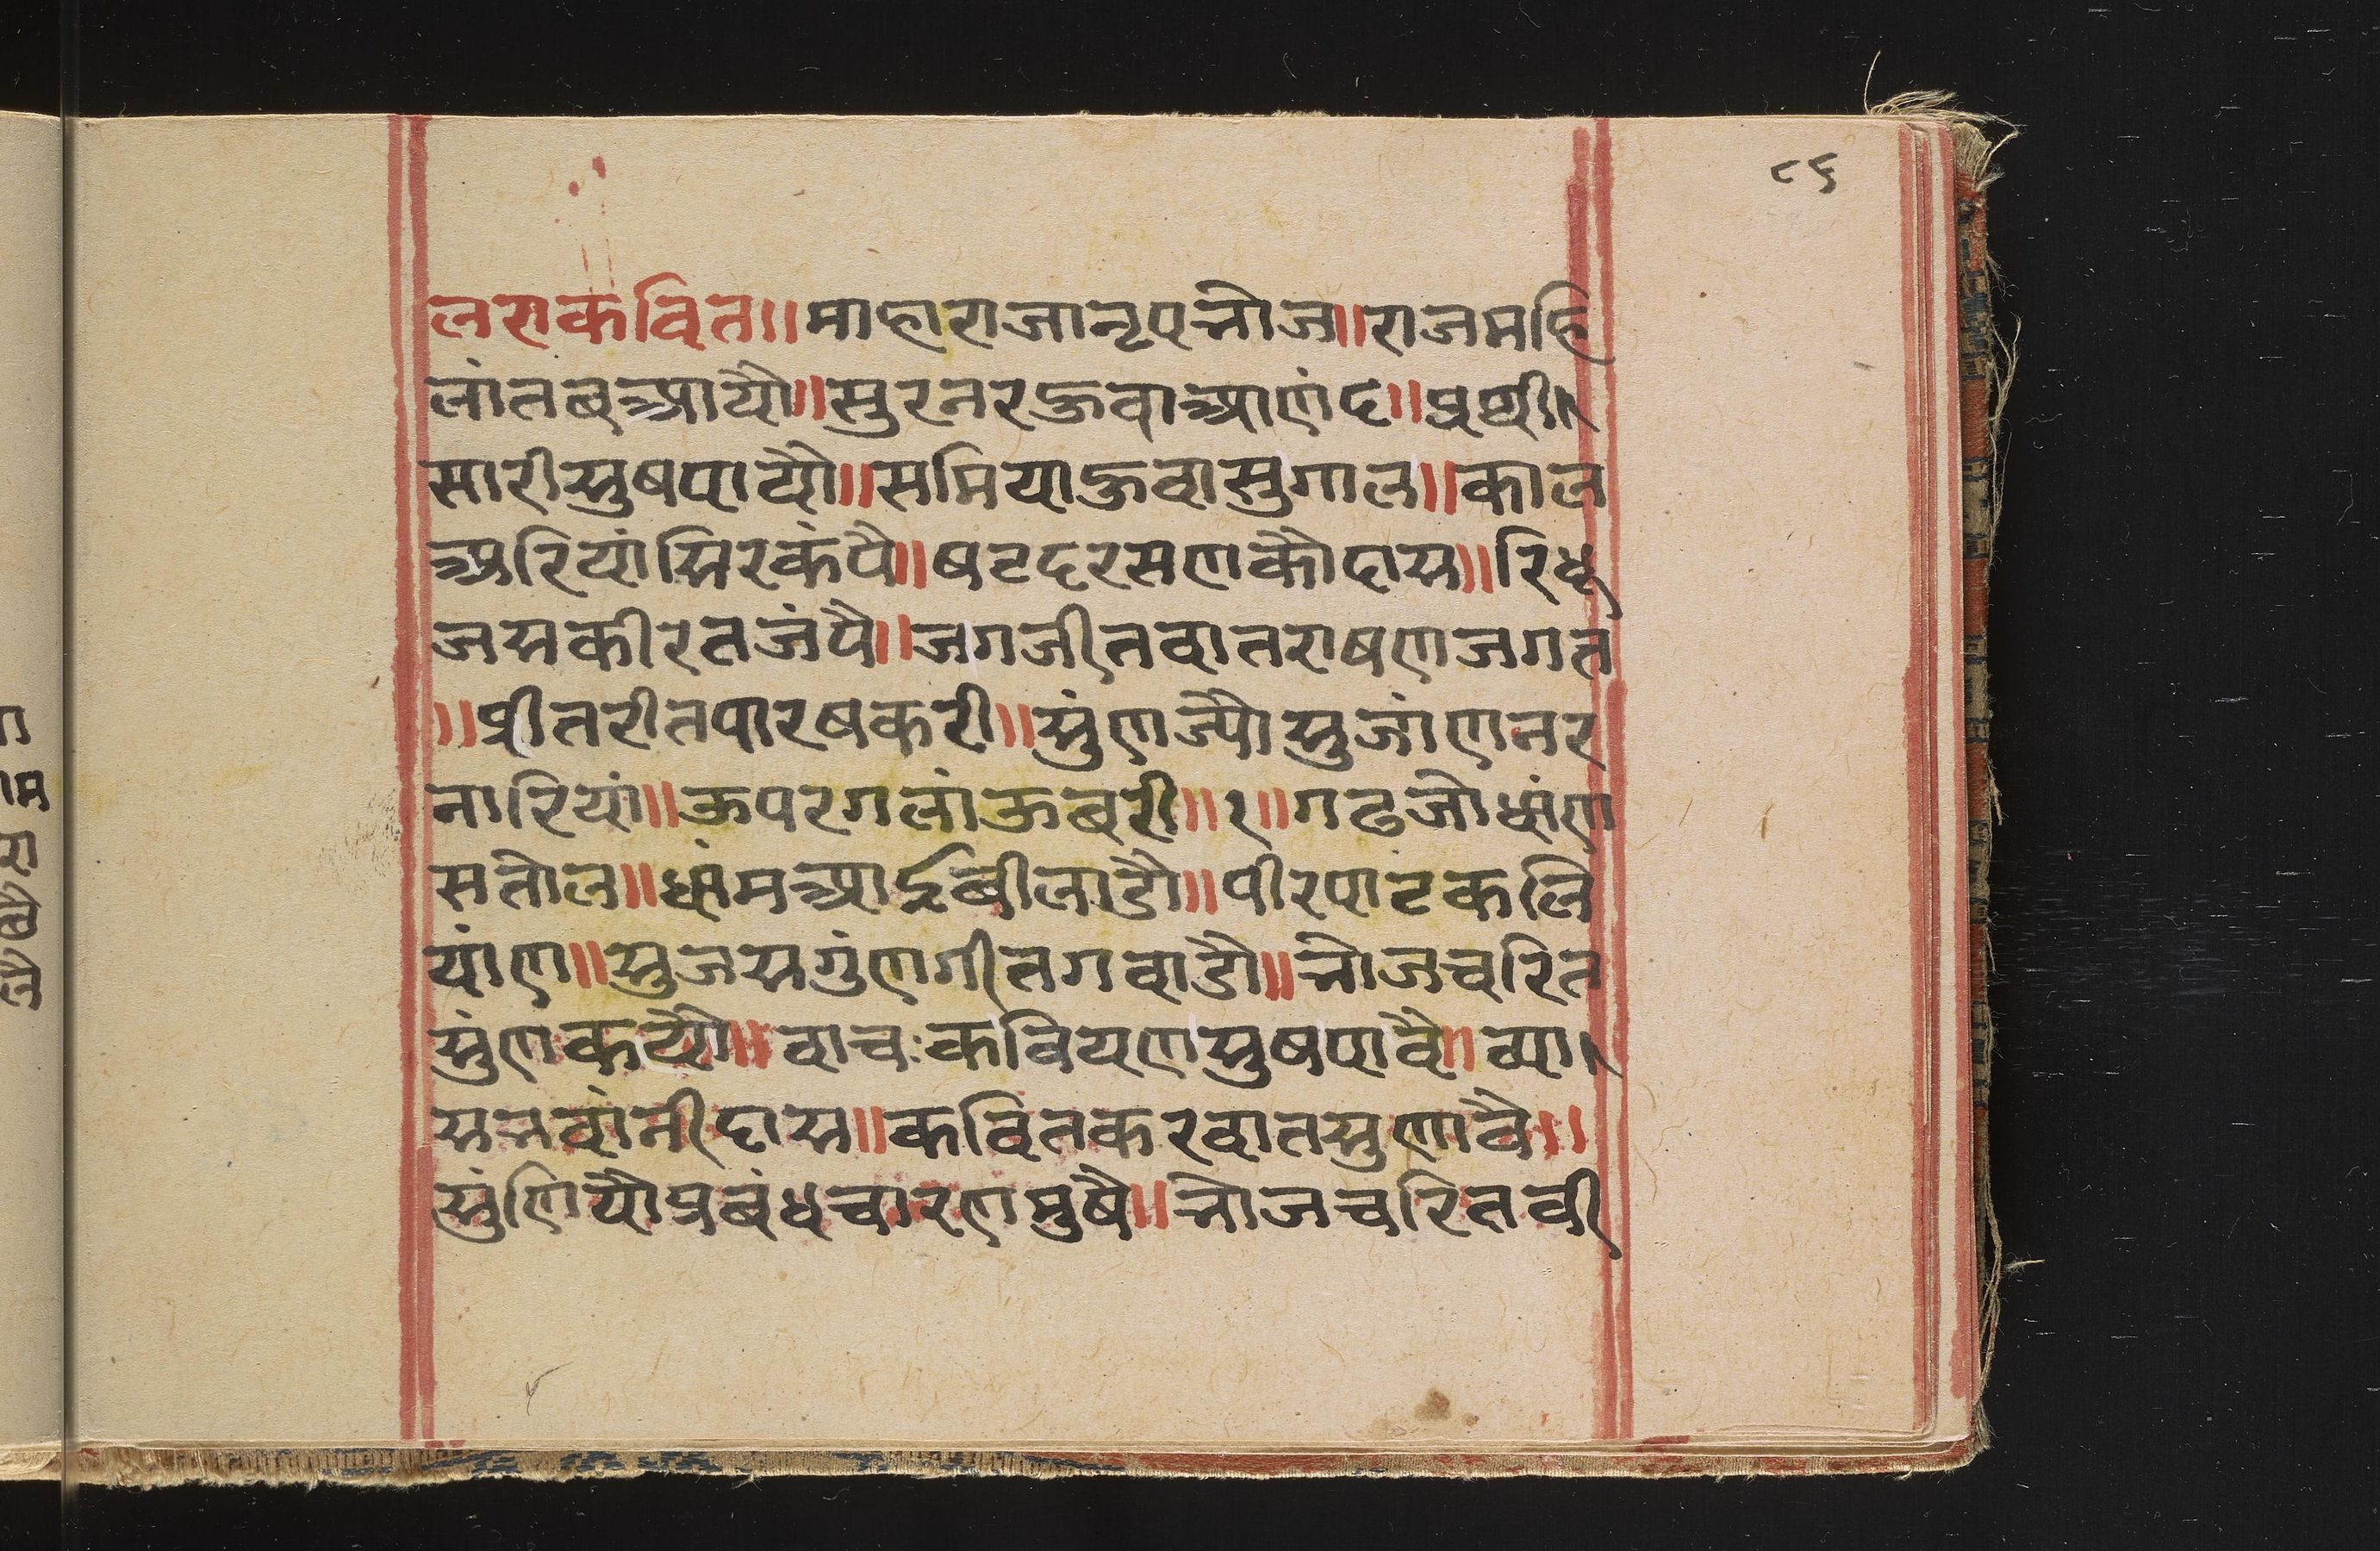 ८६
लसकवित॥माहाराजानृपभोज॥राजमहि
लांतबआयौ॥सुरनरहुवाआणंद॥प्रथी
सारीसुषपायौ॥समियाहुवासुगाल॥काल
अरियांसिरकंपै॥षटदरसणकौदास॥रिधू
जसकीरतजंपै॥जगजीतवातराषणजगत
॥प्रीतरीतपारषकरी॥सुंणज्यौसुजांणनर
नारियां॥ऊपरगलांऊबरी॥१॥गढजोधांण
सतोल॥धांमआईबीलाडौ॥पीरपाटकलि
यांण॥सुजसगुंणगीतगवाडौ॥भोजचरित
सुंणकयौ॥वाच:कवियणसुषपावै॥व्या
सभवांनीदास॥कवितकरवातसुणावै॥
सुंणियौप्रबंधचारणमुषै॥भोजचरितवी